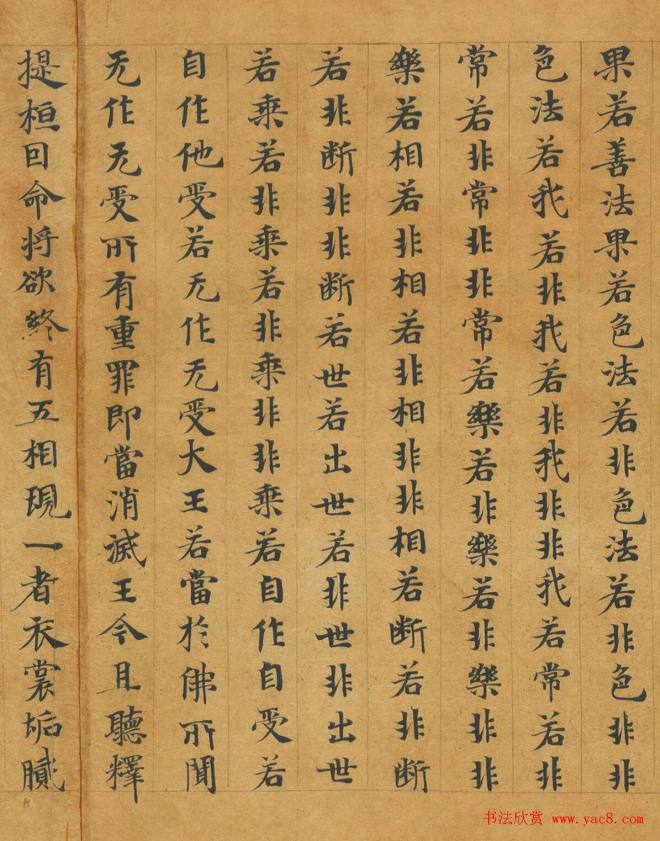 果若善法果若色法若非色法若非色非非
色法若我若非我若非我非非我若常若非
常若非常非非常若樂若非樂若非樂非非
樂若相若非相若非相非非相若断若非断
若非断非非断若世若出世若非世非出世
若乘若非乘若非乘非非乘若自作自受若
自作他受若无作无受大王若當於佛所聞
无作无受所有重罪即當消滅王今且聽釋
提桓囙命将欲終有五相現一者衣裳垢膩
书法欣赏 www.yac8.com